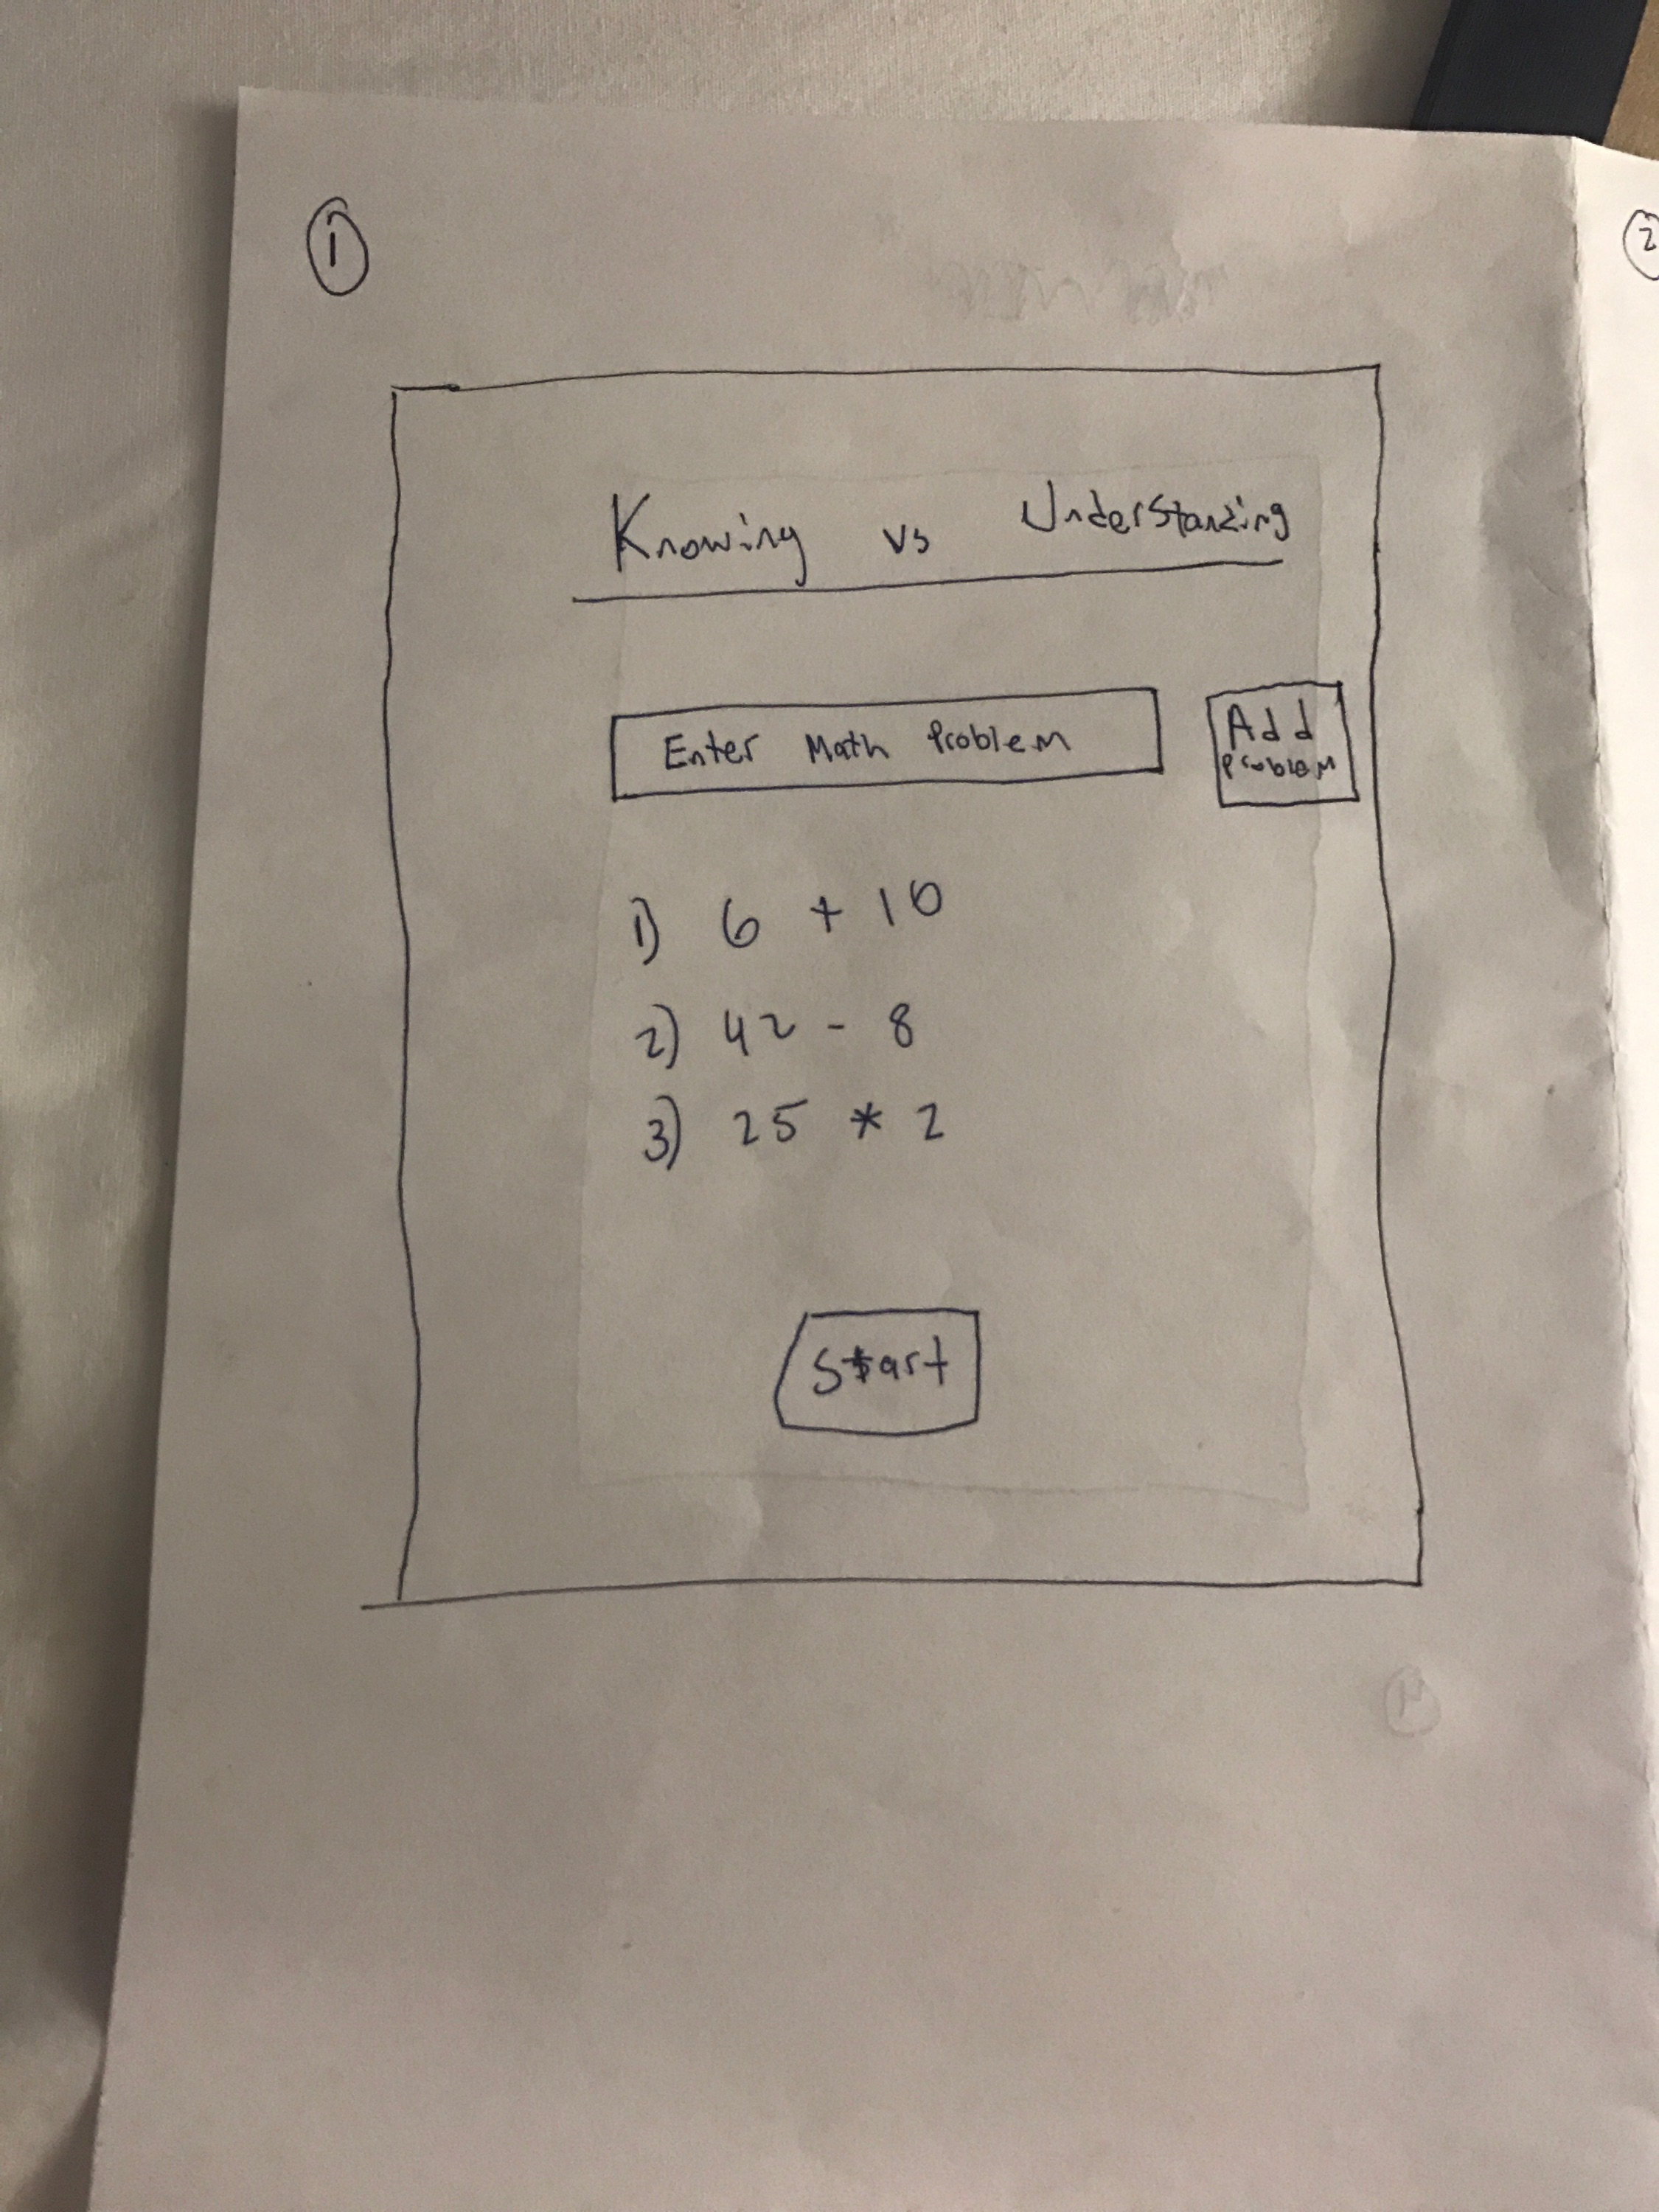 1
2
Knowing vs Understanding
Enter Math Problem
Add
Problem
1) 6 + 10
2) 42 - 8
3) 25 * 2
Start